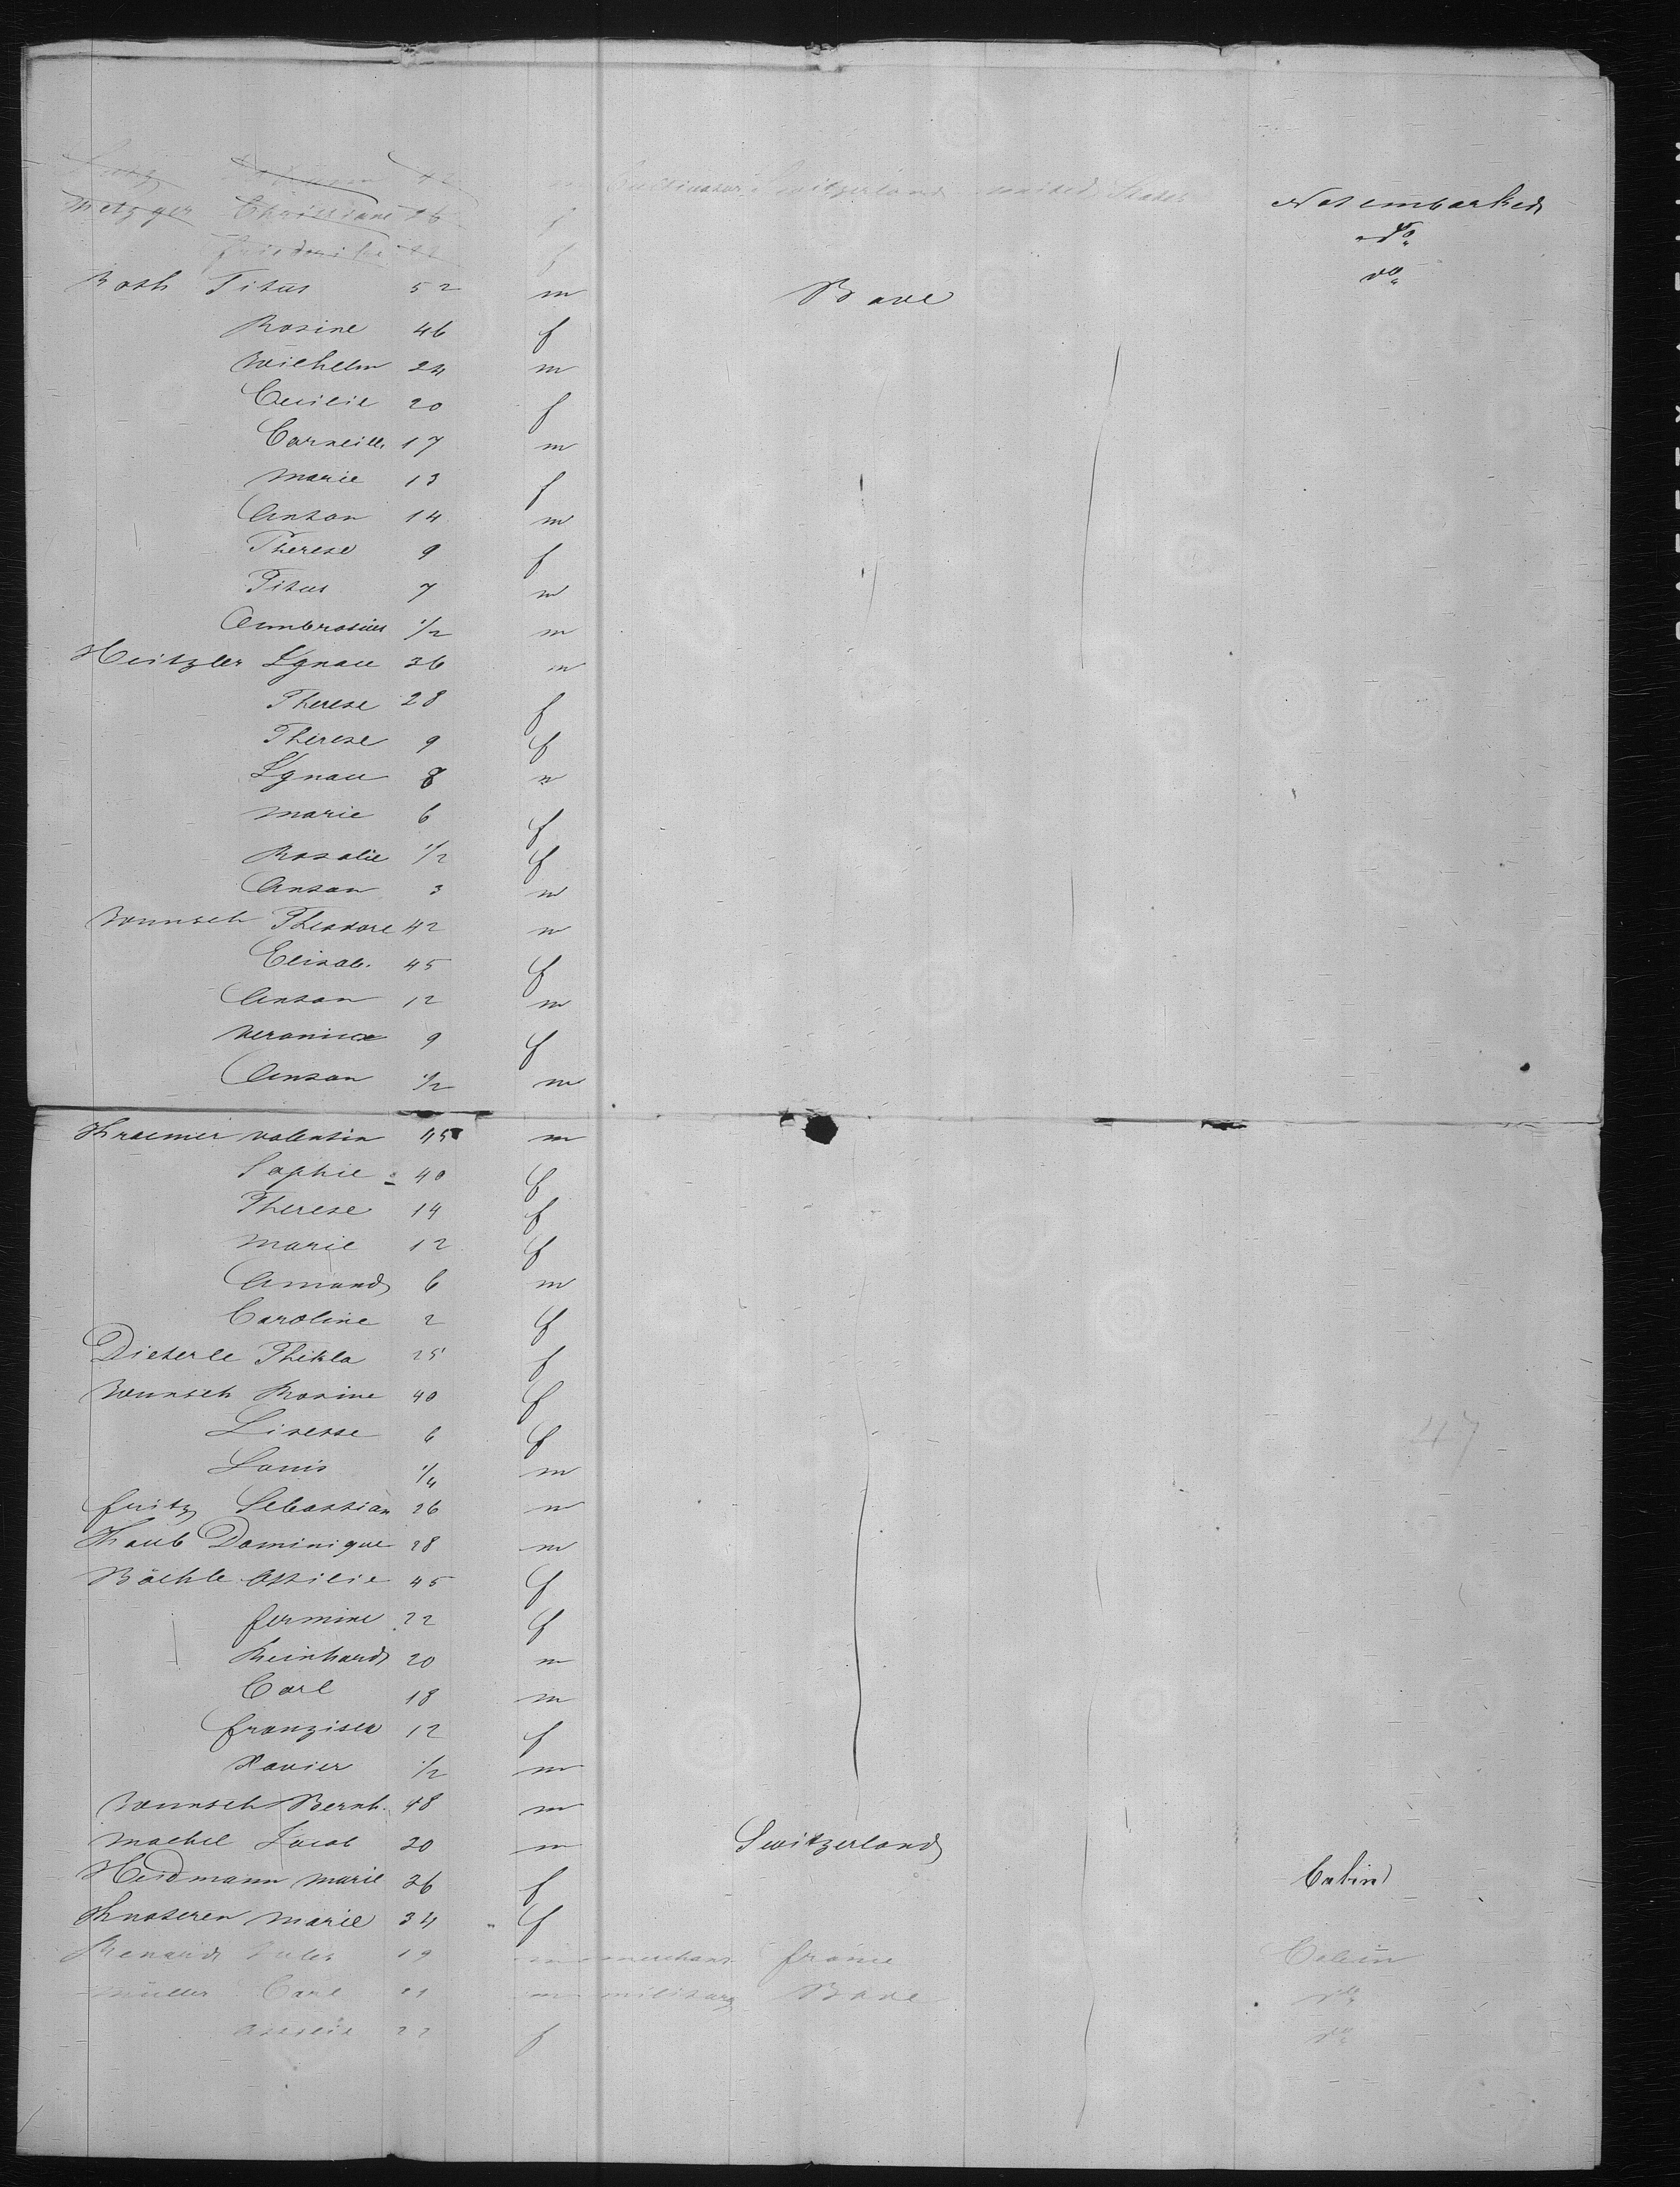 m Cultivator Switzerland united States Not embarked
Metzger Christiane 26 f do
f do
Roth Titus 52 m Bade
Rosine 46 f
Wilhelm 24 m
Cecilie 20 f
Corneille 17 m
Marie 13 f
Anton 14 m
Therese 9 f
Titus 7 m
Ambrosius 1/2 m
Heitzler Ignace 36 m
Therese 28 f
Therese 9 f
Ignace 8 m
Marie 6 f
Rosalie 1/2 f
Anton 3 m
Wunsch Theodore 42 m
Elisab. 45 f
Anton 12 m
Veronica 9 f
Anton 1/2 m
Kraemer Valentin 45 m
Sophie 40 f
Therese 14 f
Marie 12 f
Amand 6 m
Caroline 2 f
Dieterle Thekla 25 f
Wunsch Rosine 40 f
Lisette 6 f
47
Louis 1/4 m
fritz Sebastian 26 m
Kaub Dominique 28 m
Bächle Ottilie 45 f
fermine 22 f
Reinhard 20 m
Carl 18 m
franzisca 12 f
Xavier 1/2 m
Wunsch Bernh. 48 m
Machel Jacob 20 m Switzerland
Heidmann Marie 36 f Cabin
Knoteren Marie 34 " f
Renard Jules 19 m merchant france Cabin
Müller Carl 21 m military Bade do
22 f do